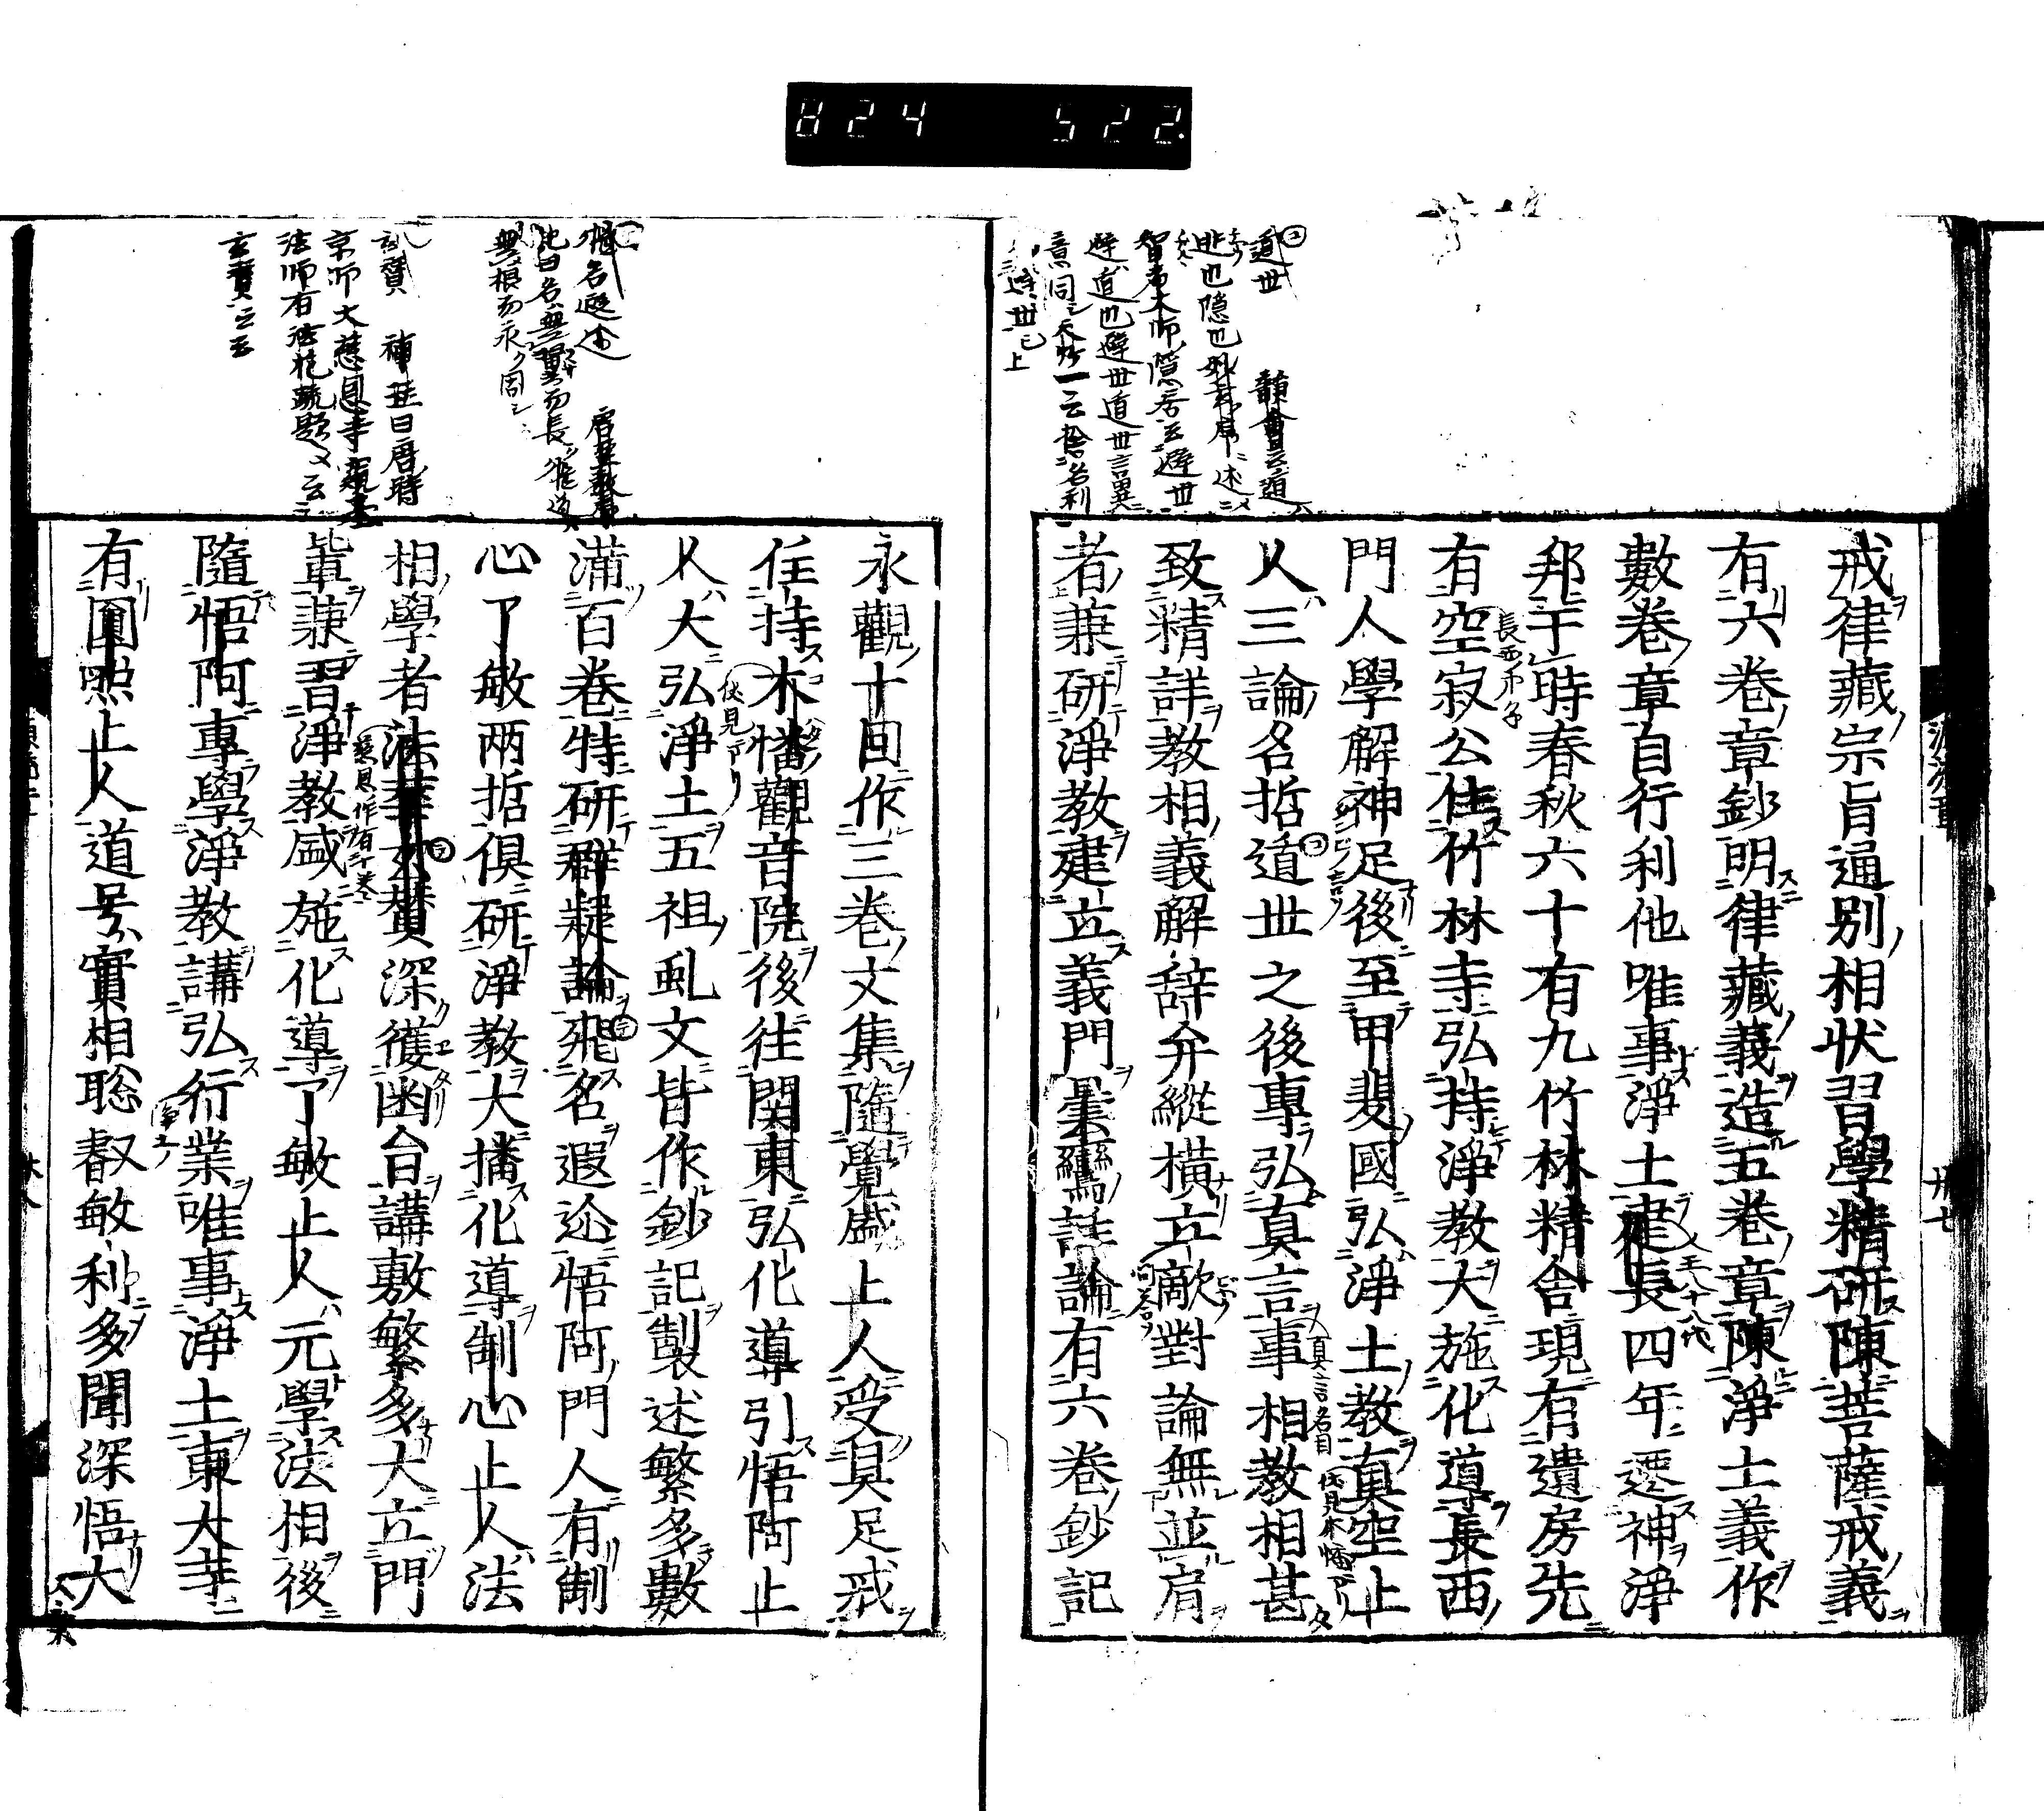 824 522.
戒律藏宗旨通別相状習學精研陳菩薩戒義
有六卷章鈔明律藏義造五卷章陳淨土義作
數卷章自行利他唯事淨土建長四年遷神淨
邦于時春秋六十有九竹林精舍現有遺房先
有空寂公住竹林寺弘持淨教大施化導長西
門人學解神足後至甲斐國弘淨土教真空上
人三論名哲遁世之後專弘真言事相教相甚
致精詳教相義解辞弁縱横立敵對論無並肩
者兼研淨教建立義門曇鸞註論有六卷鈔記
永觀十因作三卷文集隨覺盛上人受具足戒
住持木幡觀音院後往関東弘化導引悟阿上
人大弘淨土五祖虬文皆作鈔記製述繁多數
滿百卷特研群疑論飛名遐迩悟阿門人有制
心了敏两哲俱研淨教大播化導制心上人法
相學者法華玄賛深獲幽旨講敷繁多大立門
輩兼習淨教盛施化導了敏上人元學法相後
隨悟阿專學淨教講弘行業唯事淨土東大寺
有圓照上人道号實相聡叡敏利多聞深悟大
長西弟子
人王八十八代
真言名目
伏見木幡
伏見
慈恩作有
遁世 韻會云遁
逃也隱也
智者大師隱居云避世
避遁也避世遁世言異
意同
一云捨名利
世已上
飛名遐迩
曰名無翼而長飛
無根而永固
玄賛
曰唐時
京師大慈恩寺窺基
法師有法花疏題云
玄賛云云